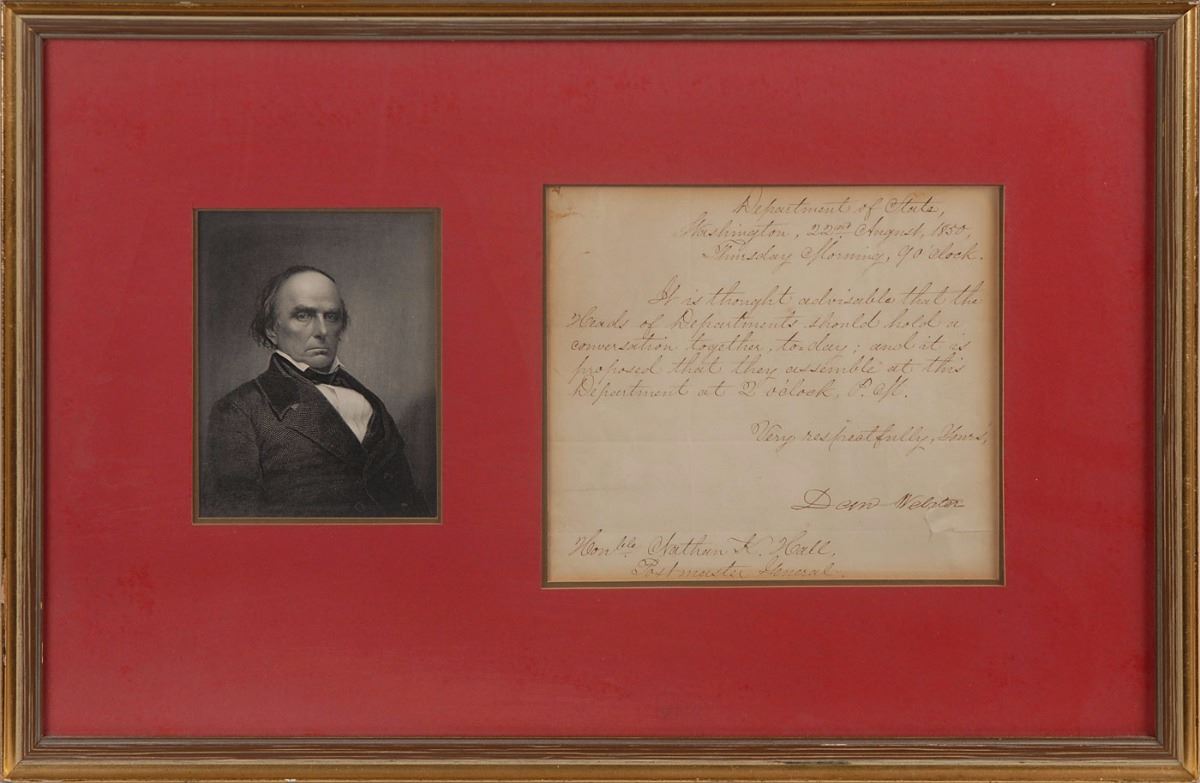 Department of State,
Washington, 22nd August, 1850,
Thursday Morning, 9 o'clock.
It is thought advisable that the
Heads of Departments should hold a
conversation together, to-day; and it is
proposed that they assemble at this
Department at 2 o'clock, P. M.
Very respectfully, Yours,
Danl Webster
Honble. Nathan K. Hall,
Postmaster General.